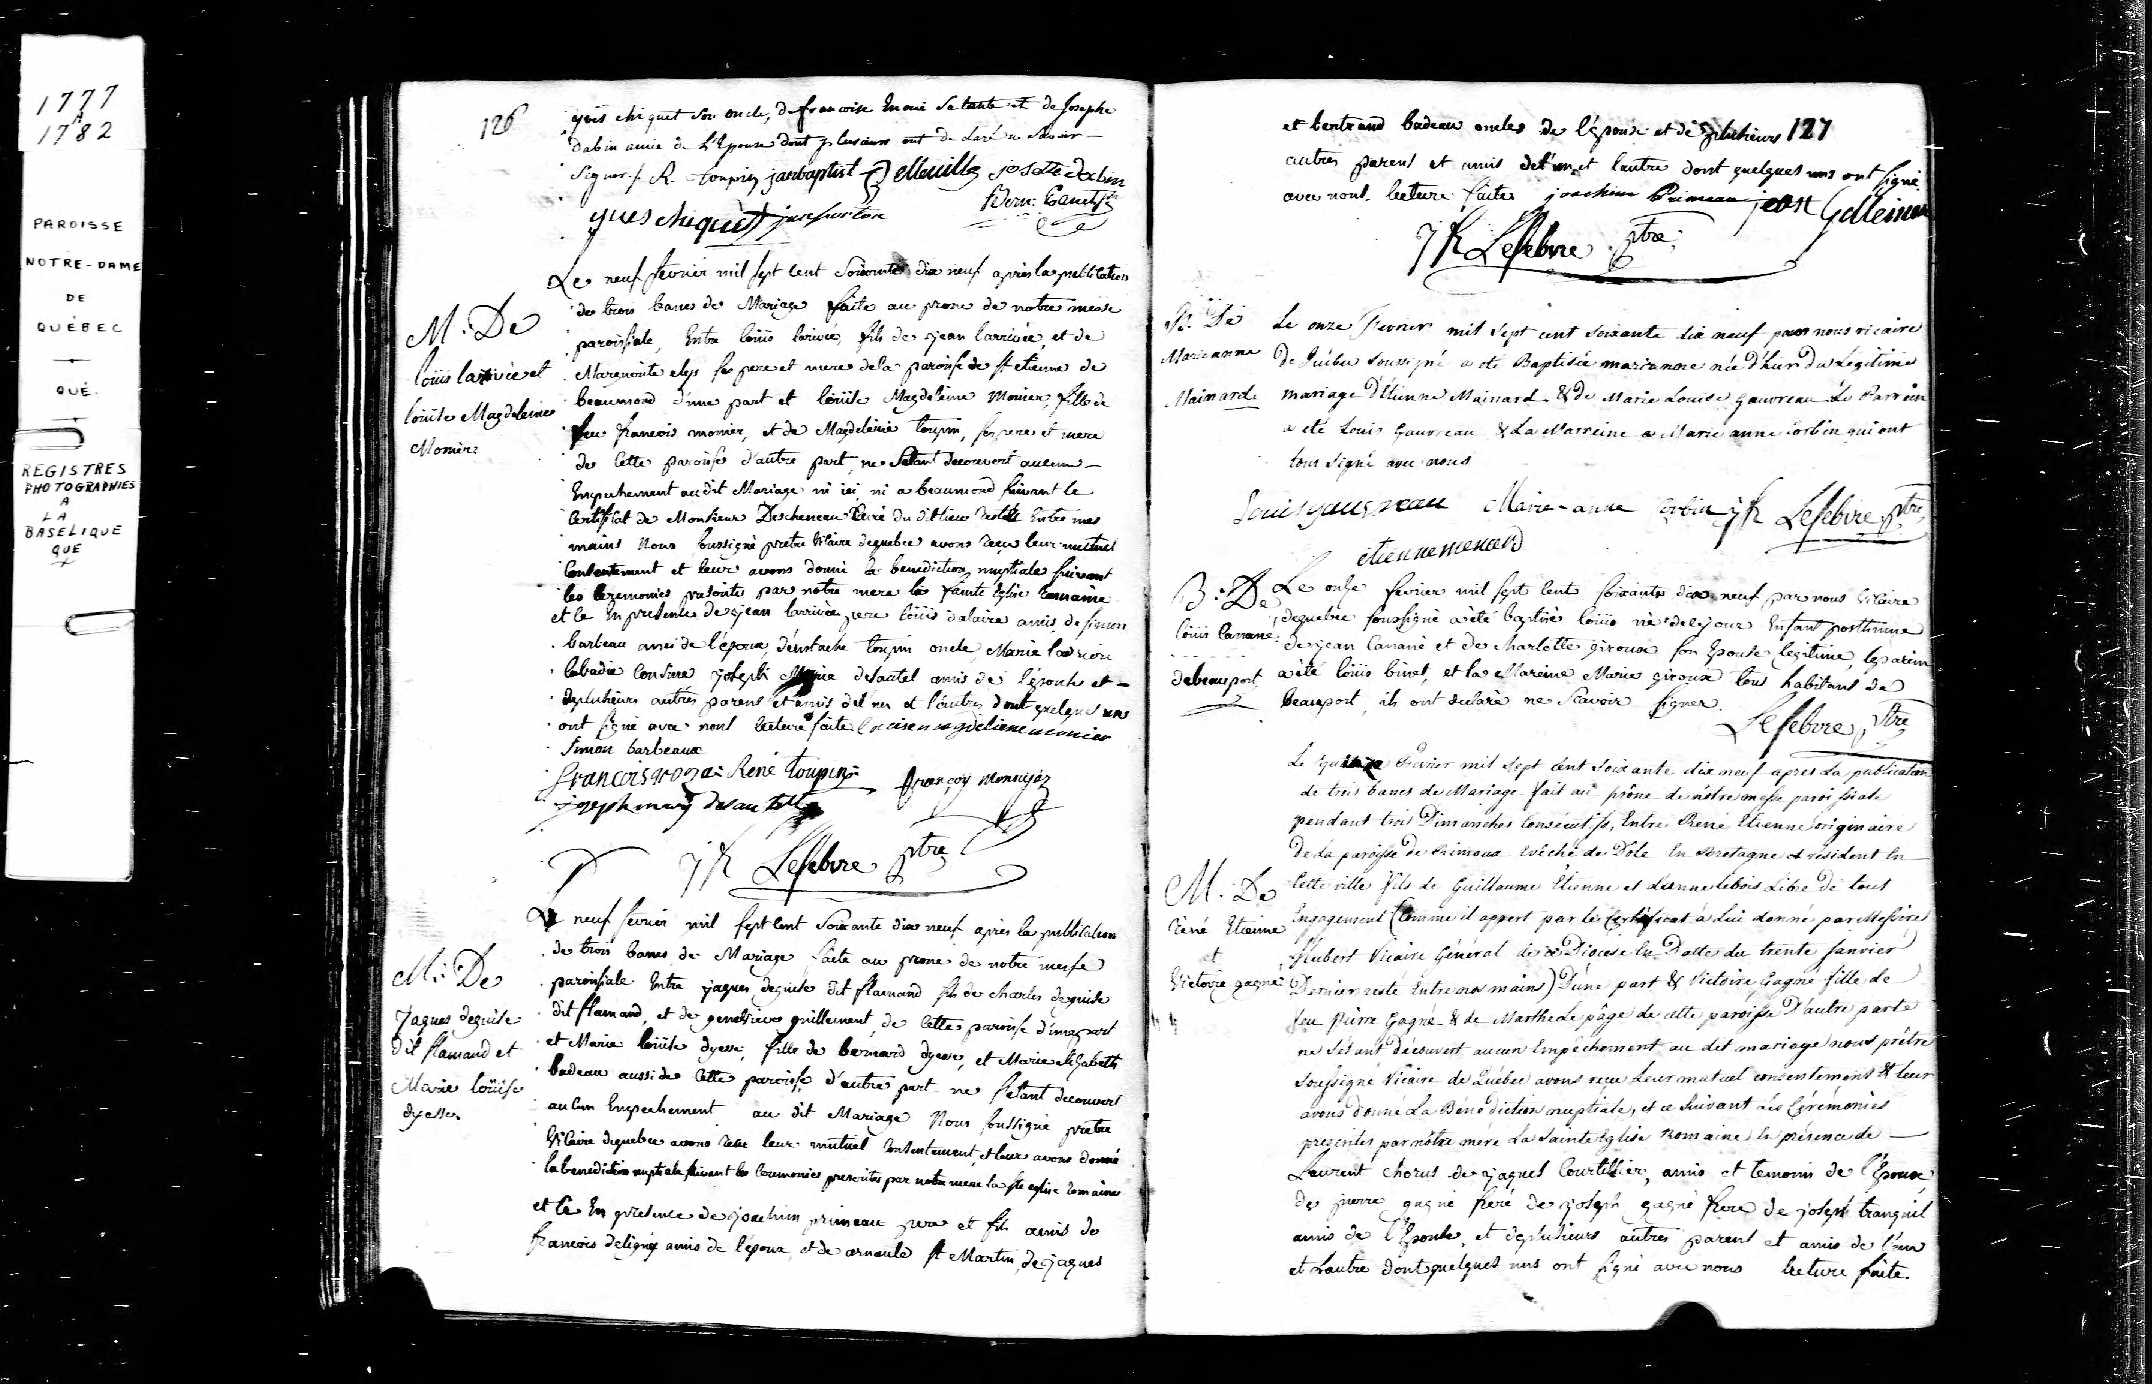 1777
A
1782
PAROISSE
NOTRE-DAME
DE
QUÉBEC
QUÉ.
REGISTRES
PHOTOGRAPHIES
A
LA
BASELIQUE
QUE
126
yves chiquet son oncle, de francoise Enoüé sa tante et de Josephe
dabin amie de L'Epouse dont plusieurs ont declaré ne savoir
signer /. R. toupin janbaptist josette dabin
yves chiquet
Le neuf fevrier mil sept cent soixante dix neuf après la publication
de trois bancs de Mariage faite au prone de notre messe
paroissiale, Entre loüis larivée, fils de jean larrivée, et de
Marguerite elys ses pere et mere de la paroisse de st etienne de
beaumond d'une part et loüise Magdeleine Monier, fille de
feu francois monier, et de Magdeleine toupin, ses pere et mere
de cette paroisse d'autre part, ne s'etant decouvert aucun
Empechement audit Mariage ni ici, ni a beaumond suivant le
Certificat de Monsieur Descheneau Curé du dit lieu resté Entre mes
mains Nous soussigné pretre Vicaire dequebec avons reçu leur mutuel
Consentement et leur avons donné la benediction nuptiale suivant
les ceremonies prescrites par notre mere la sainte Eglise romaine
et ce En presence de jean larrivée pere loüis dalaire amis, de simon
barbeau amis de l'époux, d'eustache toupin oncle, Marie
labadie Cousine joseph Marie desautel amis de l'épouse et
deplusieurs autres parens et amis de l'un et l'autre dont quelques uns
ont signé avec nous lecture faite Louise magdeliene monier
Simon barbeaux
francois René toupin françoy Monnyer
joseph mary desautell
JR Lefebvre ptre
Le neuf fevrier mil sept cent soixante dix neuf apres la publication
de trois bancs de Mariage faite au prone de notre messe
paroissiale Entre jaques deguise dit flamand fils de charles deguise
dit flamand, et de genevieve guillement, de cette paroisse d'une part
et Marie loüise dyesse, fille de bernard dyesse, et Marie elizabeth
badeau aussi de cette paroisse d'autre part ne s'etant decouvert
aucun Empechement au dit Mariage Nous soussigné pretre
Vicaire dequebec avons reçu leur mutuel Consentement, et leur avons donné
la benediction nuptiale suivant les Ceremonies prescrites par notre mere la ste eglise romaine
et ce En presence de joachim primeau pere et fils amis de
francois deligny amis de l'époux, et de arnauld st Martin, de jaques
M. De
loüis larivée et
loüise Magdeleine
Monier
M. De
Jaques deguise
dit flamand et
Marie loüise
dyesse
127
et bertrand badeau oncles de l'épouse et de plusieurs
autres parens et amis de l'un et l'autre dont quelques uns ont signé
avec nous. lecture faite joachim Primeau jean
JR Lefebvre ptre
B. De
Marieanne
Mainard
Le onze Fevrier mil sept cent soixante dix neuf par nous vicaire
De Québec soussigné a eté Baptisée marianne née d'hier du Légitime
mariage D'Etienne Mainard & de Marie Louise gauvreau Le Parrein
a eté Louis Gauvreau & La Marreine a Marie anne Corbin qui ont
tous signé avec nous
Louis gauvreau Marie-anne Corbin JR Lefebvre ptre
etienne menard
B. De
loüis Canané
debeauport
Le onze fevrier mil sept cent soixante dix neuf par nous Vicaire
dequebec soussigné a été baptisé loüis né de ce jour Enfant posthume
de jean Canané et de charlotte giroux son Epouse legitime, le parain
a été loüis binet, et la Mareine Marie giroux tous habitans de
beauport, ils ont declaré ne sçavoir signer.
Lefebvre ptre
M. De
René Etienne
et
Victoire gagné
Fevrier mil sept cent soixante dix neuf apres La publication
de trois bancs de Mariage fait au prône de nôtre messe paroissiale
pendant trois Dimanches Consécutifs, Entre René Etienne originaire
De La paroisse de evêché de Dole En Bretagne & résident En
Cette ville fils de Guillaume Etienne et Leanne lebois Libre de tout
Engagement (Comme il appert par le Certificat à Lui donné par Messire
Hubert Vicaire Général de ce Diocese En Datte du trente Janvier
Dernier resté Entre nos mains) D'une part & Victoire Gagné fille de
feu Pierre Gagné & de Marthe Le page de cette paroisse D'autre part
ne s'étant découvert aucun Empêchement au dit mariage nous prêtre
soussigné Vicaire de Québec avons reçu Leur mutuel consentement & leur
avons donné La Bénédiction nuptiale, et ce suivant Les Cérémonies
prescrites par nôtre mére La Sainte Eglise Romaine En présence de
Laurent chorus de jaques Courtillier, amis et temoins de l'Epoux
de pierre gagné frere de joseph gagné frere de joseph tranquil
amis de l'Epouse, et deplusieurs autres parens et amis de l'un
et Lautre dont quelques uns ont signé avec nous lecture faite.